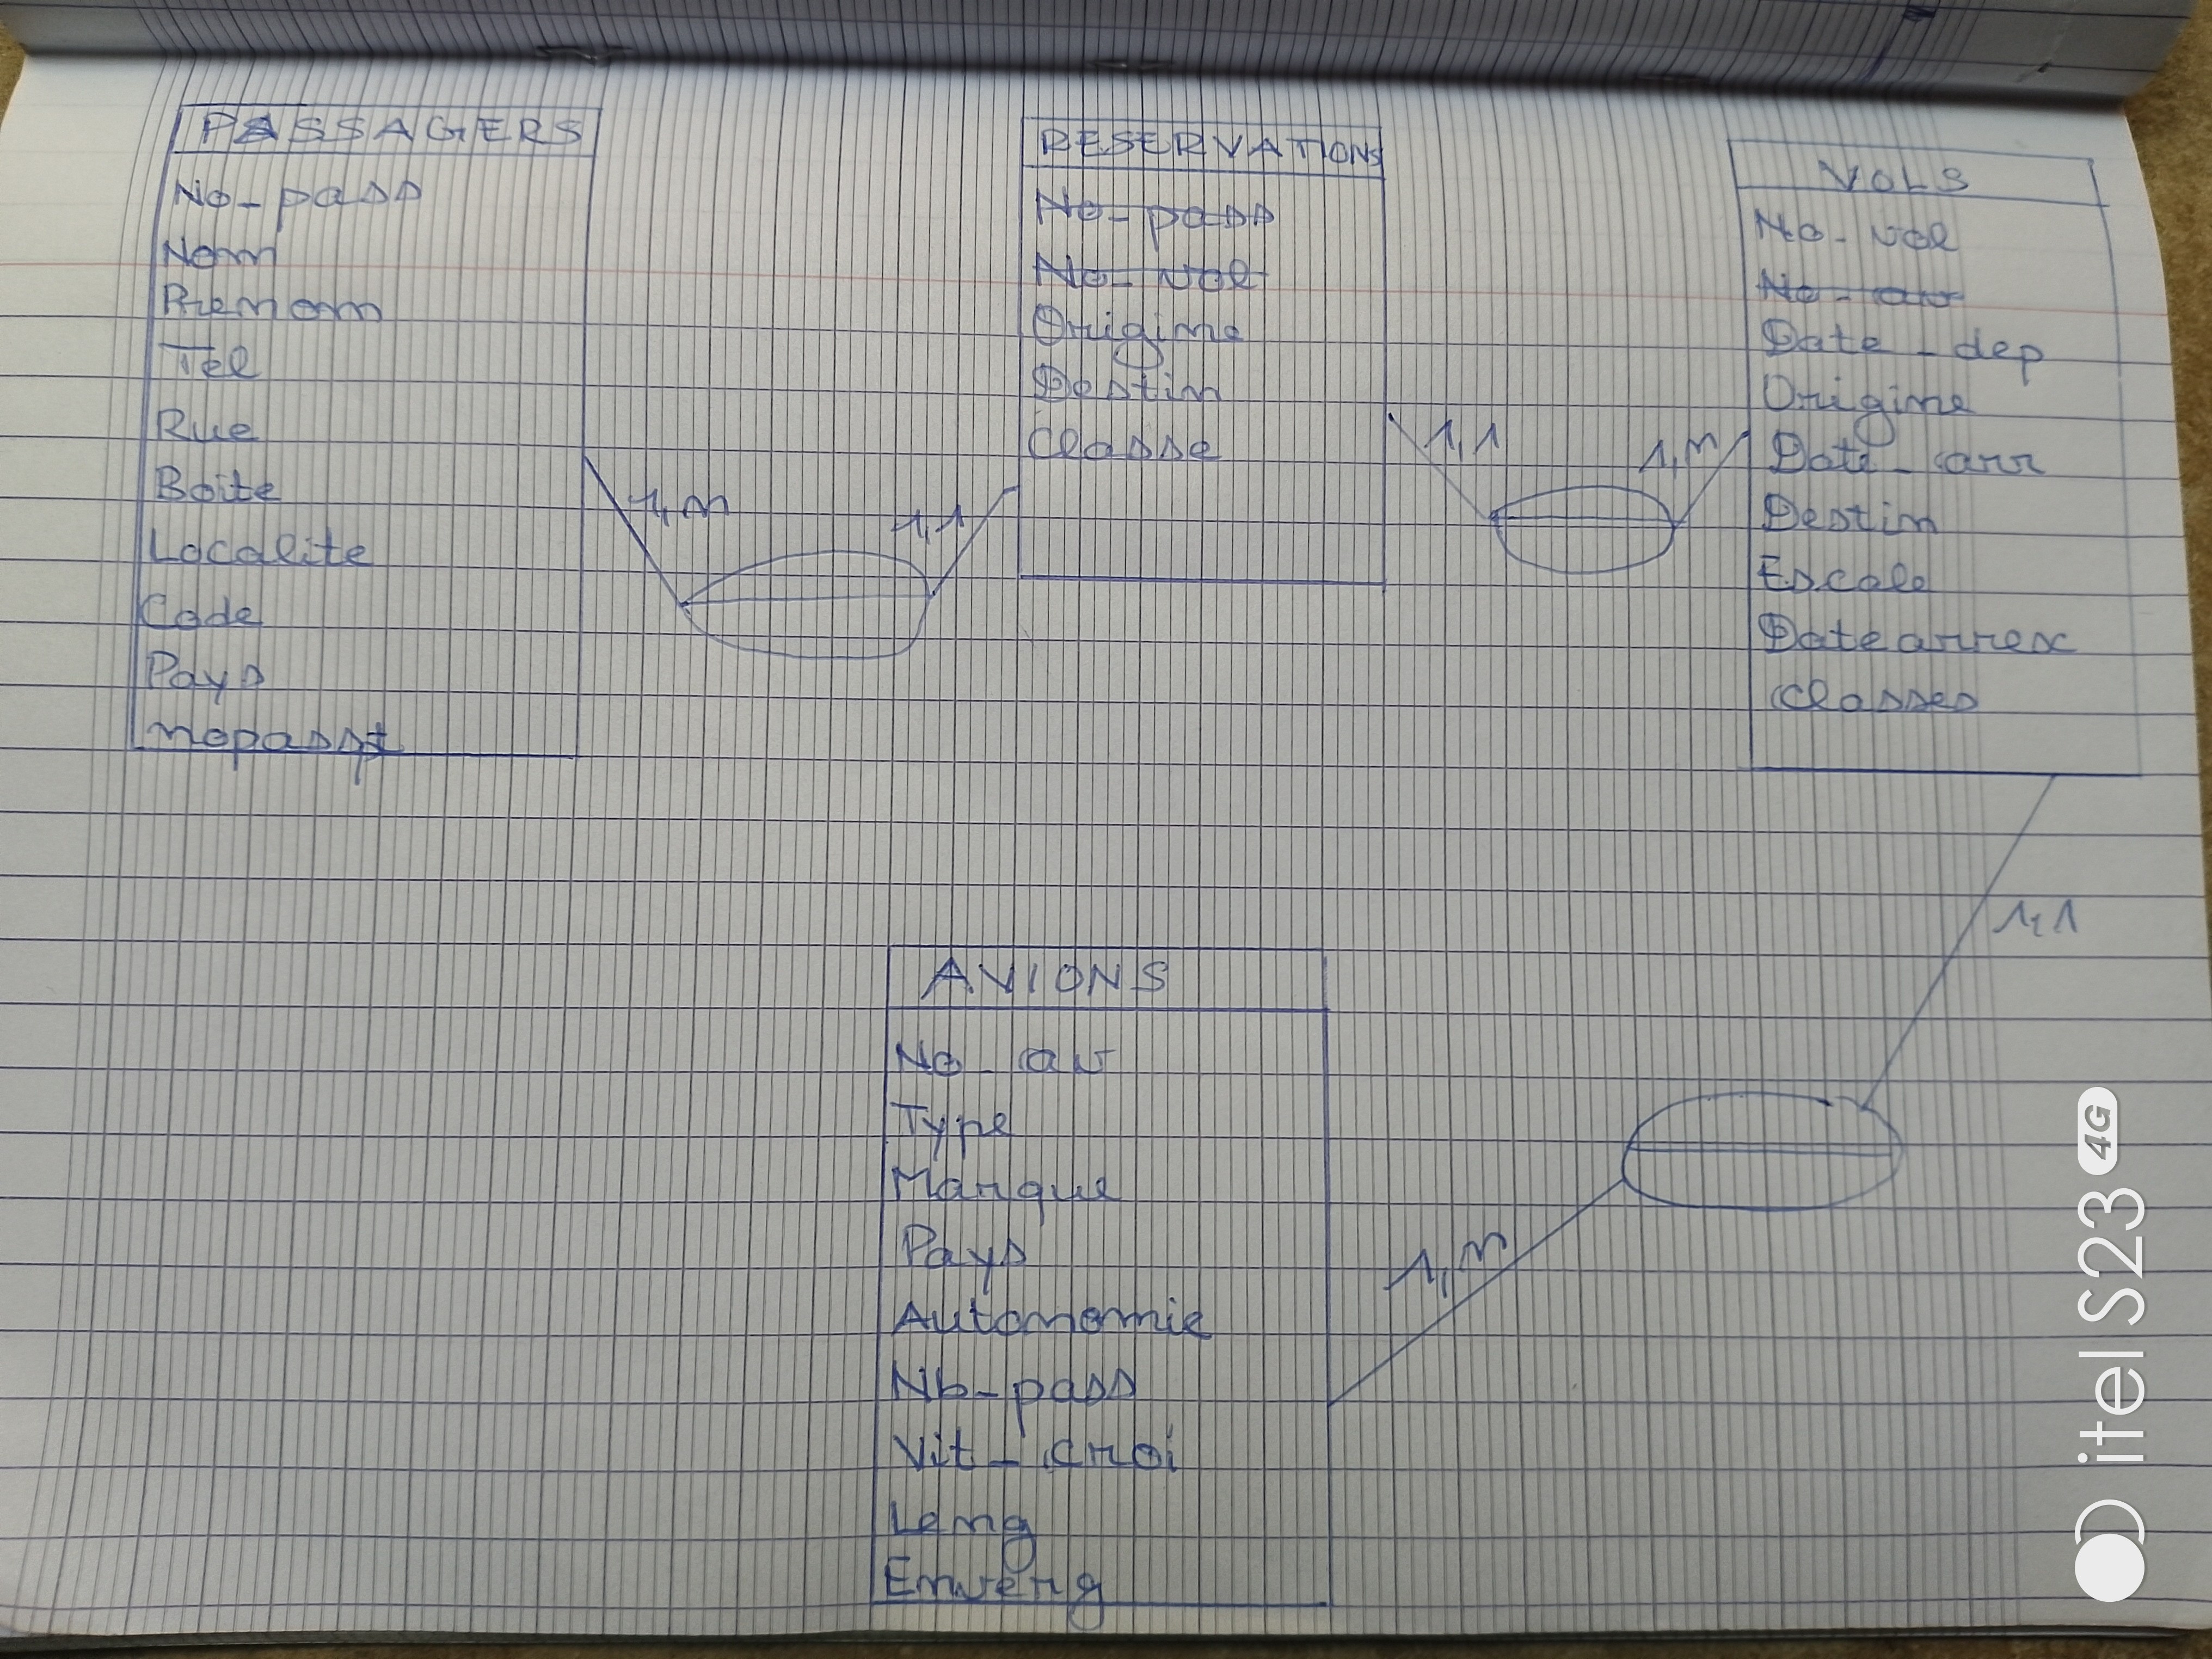 PASSAGERS
No-pass
Nom
Prenom
Tel
Rue
Boite
Localite
Code
Pays
nopasst
1,n
1,1
RESERVATIONS
No-pass
No-vol
Origine
Destin
Classe
1,1
1,n
VOLS
No-vol
No-av
Date-dep
Origine
Date-arr
Destin
Escale
Datearrex
Classes
1,1
1,n
AVIONS
No-av
Type
Marque
Pays
Autonomie
Nb-pass
Vit-croi
Long
Enverg
itel S23 4G